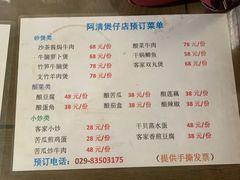 阿清煲仔店预订菜单
砂煲类
沙茶酱焗牛肉 68 元/份 酸菜牛肉 78 元/份
牛腩萝卜煲 68 元/份 干锅鲫鱼 58 元/份
竹笋牛腩煲 78 元/份 客家双丸煲 68 元/份
支竹羊肉煲 78 元/份
酿菜类
酿豆腐 48 元/份 酿苦瓜 38 元/份 酿辣椒 38 元/份
酿蛋角 38 元/份 酿茄盒 38 元/份 酿莲藕 38 元/份
小炒类
客家小炒 48 元/份 干贝蒸水蛋 48 元/份
苦瓜煎鸡蛋 28 元/份 客家香煎豆腐 38 元/份
苦瓜炒牛肉 48 元/份
预订电话：029-83503175 （提供手撕发票）